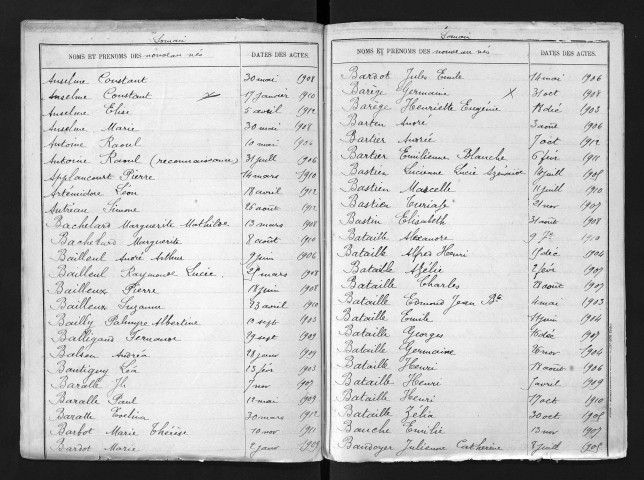 Somain
NOMS ET PRENOMS DES nouveau nés DATES DES ACTES.
Anselme Constant 30 mai 1908
Anselme Constant 17 janvier 1910
Anselme Elise 5 avril 1912
Anselme Marie 30 mai 1908
Antoine Raoul 10 mai
Antoine Raoul (reconnaissance) 31 juill 1906
Applancourt Pierre 14 mars 1910
Artémidore Léon 18 avril 1912
Autreau Simone 26 août 1912
Bachelard Marguerite Mathilde 13 mars 1908
Bachelard Marguerite 8 août 1910
Bailleul André Arthur 9 juin 1906
Bailleul Raymonde Lucie 29 mars 1908
Bailleux Pierre 18 juin 1908
Bailleux Suzanne 23 avril 1910
Bailly Palmyre Albertine 10 sept 1903
Balligand Fernande 29 sept 1909
Balsen Andréa 28 janv 1909
Bantigny Léa 13 fév 1903
Baralle Jh 7 nov 1907
Baralle Paul 12 mai 1909
Baralle Evelina 30 mars 1912
Barbot Marie Thérèse 10 nov 1911
Bardot Marie 2 janv 1909
Somain
NOMS ET PRENOMS DES nouveau nés DATES DES ACTES.
Bardot Jules Emile 14 mai 1906
Barège Germaine X 31 oct 1908
Barège Henriette Eugénie 18 déc 1903
Barten André 3 août 1906
Bartier Andrée 7 oct 1912
Bartier Emilienne Blanche 6 fév 1911
Bastien Lucienne Lucie 10 juill 1905
Bastien Marcelle 11 juill 1910
Bastien 21 nov 1909
Bastin Elisabeth 31 août 1908
Bataille Alexandre 9 1910
Bataille Alfred Henri 9 déc 1904
Bataille Adélie 2 fév 1909
Bataille Charles 28 août 1907
Bataille Edmond Jean Bte 4 mai 1903
Bataille Emile 14 juin 1904
Bataille Georges déc 1907
Bataille Germaine 26 nov 1904
Bataille Henri 18 août 1906
Bataille Henri 7 avril 1909
Bataille Henri 17 oct 1910
Bataille Zélia 30 oct 1905
Bauche Emilie 13 nov 1907
Baudoyer Julienne Catherine 8 juill 1905